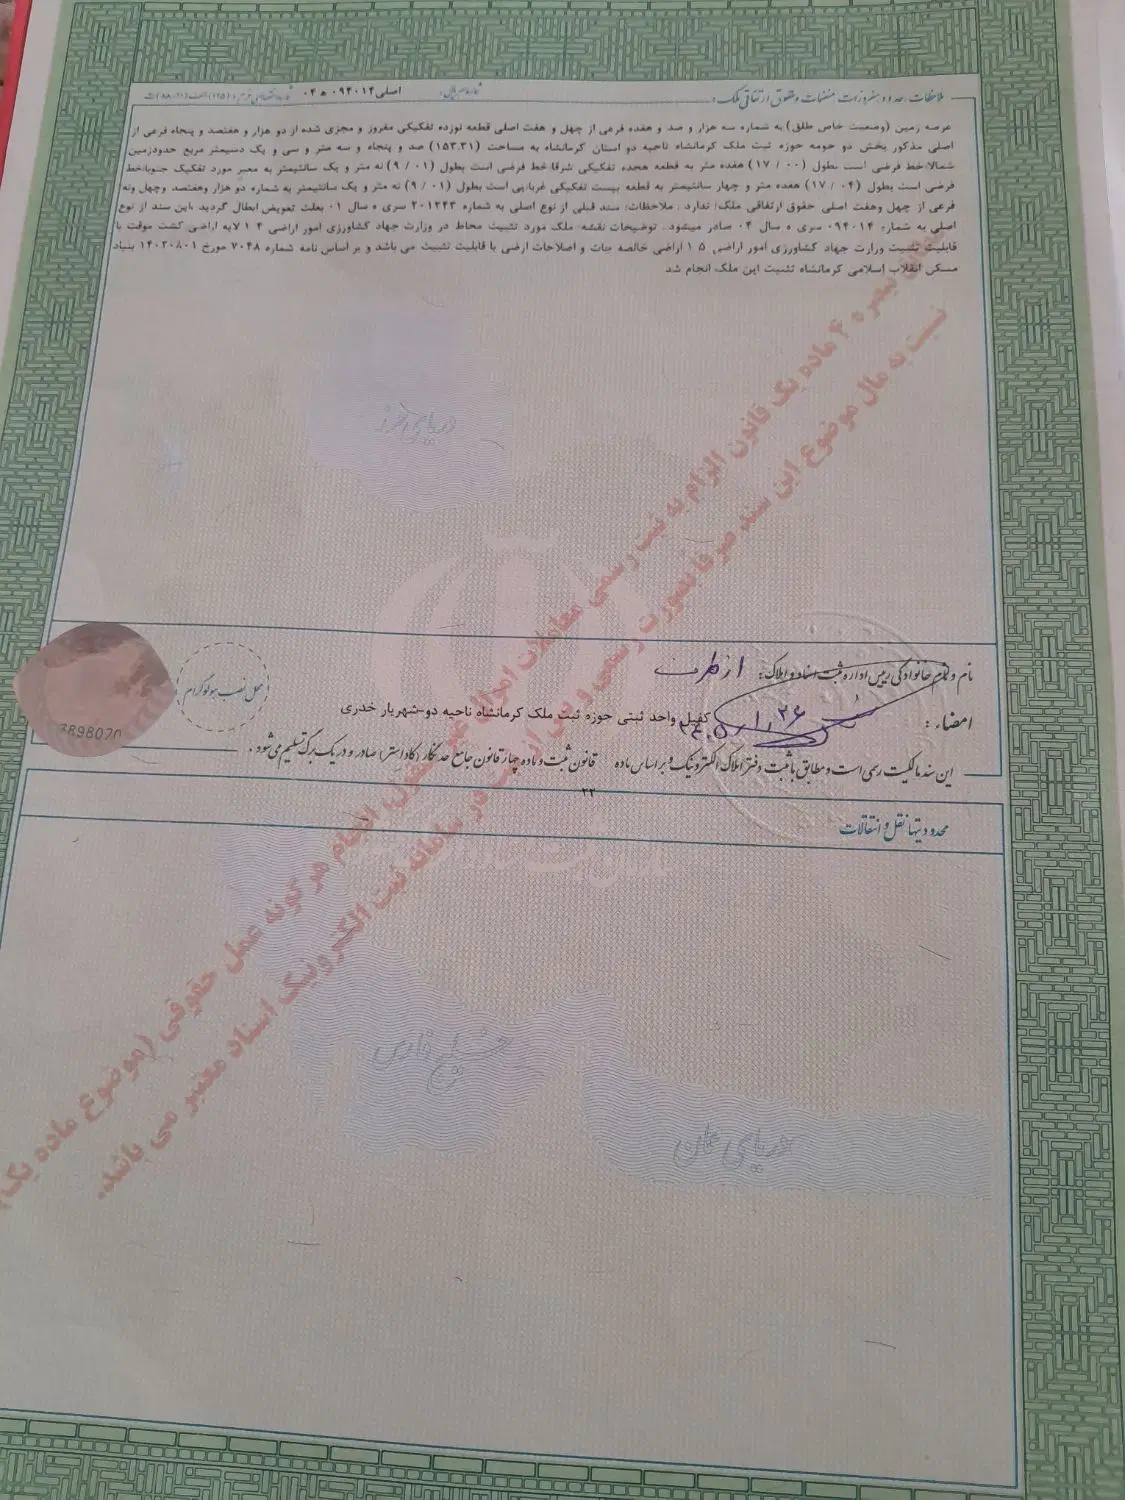 ملاحظات، حدود و مفروزات، منضمات و حقوق ارتفاقی ملک:
شماره سریال: اصلی ۰۹۴۰۱۴ ه ۰۴
عرصه زمین (وضعیت خاص طلق) به شماره سه هزار و صد و هفده فرعی از چهل و هفت اصلی قطعه نوزده تفکیکی مفروز و مجزی شده از دو هزار و هفتصد و پنجاه فرعی از
اصلی مذکور بخش دو حومه حوزه ثبت ملک کرمانشاه ناحیه دو استان کرمانشاه به مساحت (۱۵۳.۳۱) صد و پنجاه و سه متر و سی و یک دسیمتر مربع حدودزمین
شمالا:خط فرضی است بطول (۱۷/۰۰) هفده متر به قطعه هجده تفکیکی شرقا:خط فرضی است بطول (۹/۰۱) نه متر و یک سانتیمتر به معبر مورد تفکیک جنوبا:خط
فرضی است بطول (۱۷/۰۴) هفده متر و چهار سانتیمتر به قطعه بیست تفکیکی غربا:پی است بطول (۹/۰۱) نه متر و یک سانتیمتر به شماره دو هزار وهفتصد وچهل ونه
فرعی از چهل وهفت اصلی حقوق ارتفاقی ملک: ندارد . ملاحظات: سند قبلی از نوع اصلی به شماره ۲۰۱۲۴۳ سری ه سال ۰۱ بعلت تعویض ابطال گردید ،این سند از نوع
اصلی به شماره ۰۹۴۰۱۴ سری ه سال ۰۴ صادر میشود.. توضیحات نقشه: ملک مورد تثبیت محاط در وزارت جهاد کشاورزی امور اراضی ۱۴ لایه اراضی کشت موقت با
قابلیت تثبیت وزارت جهاد کشاورزی امور اراضی ۱۵ اراضی خالصه جات و اصلاحات ارضی با قابلیت تثبیت می باشد و بر اساس نامه شماره ۷۰۴۸ مورخ ۱۴۰۳۰۸۰۱ بنیاد
مسکن انقلاب اسلامی کرمانشاه تثبیت این ملک انجام شد
تبصره ۴ ماده یک قانون الزام به ثبت رسمی معاملات اموال غیر منقول، انجام هر گونه عمل حقوقی (موضوع ماده یک)
نسبت به مال موضوع این سند صرفا بصورت رسمی و پس از ثبت در سامانه ثبت الکترونیک اسناد معتبر می باشد.
دریای خزر
نام و نام خانوادگی رییس اداره ثبت اسناد و املاک: از طرف
محل نصب هولوگرام
امضاء:
کفیل واحد ثبتی حوزه ثبت ملک کرمانشاه ناحیه دو-شهریار خدری
این سند مالکیت رسمی است و مطابق با ثبت دفتر املاک الکترونیک و بر اساس ماده ۲۲ قانون ثبت و ماده چهار قانون جامع حدنگار (کاداستر) صادر و در یک برگ تسلیم می شود.
محدودیتها نقل و انتقالات
خلیج فارس
دریای عمان